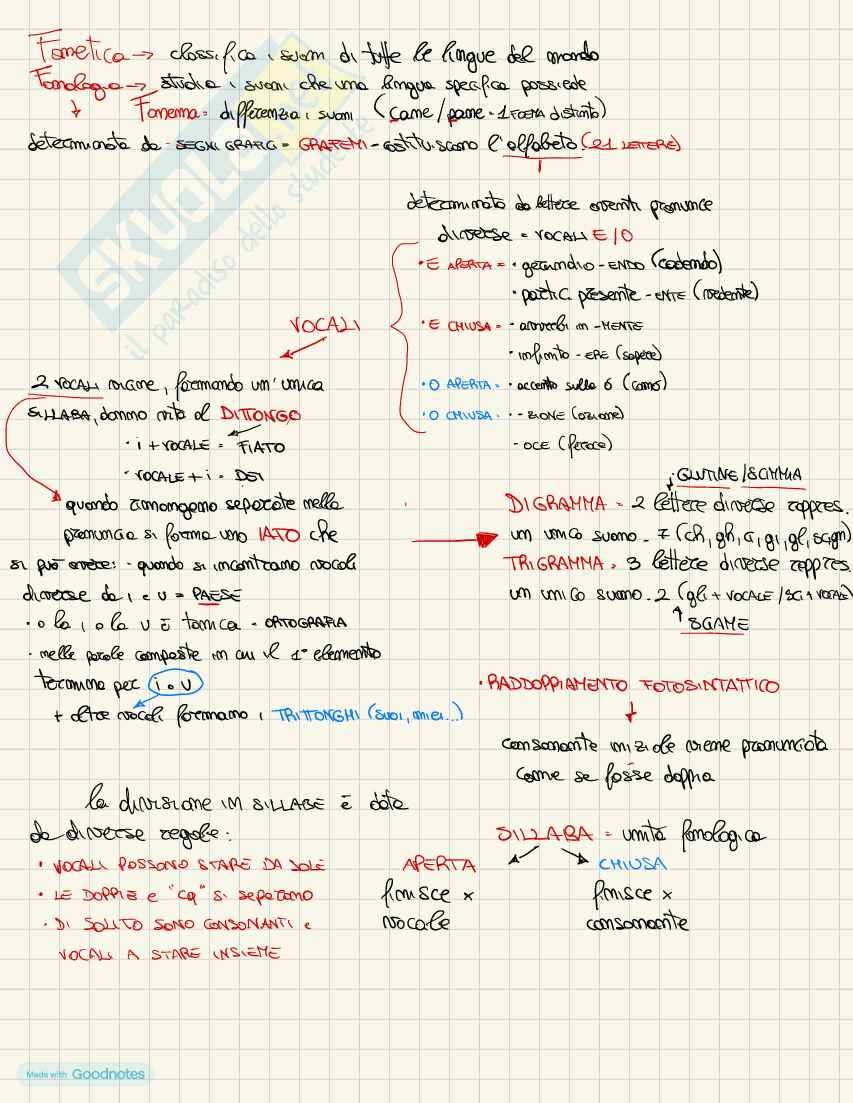 Fonetica → classifica i suoni di tutte le lingue del mondo
Fonologia → studia i suoni che una lingua specifica possiede
Fonema = differenzia i suoni (cane/pane = 1 FOEMA distinto)
determinata da - SEGNI GRAFICI = GRAFEMI - costituiscono l'alfabeto (21 LETTERE)
determinato da lettere aventi pronunce
diverse = VOCALI E/O
• E APERTA = • gerundio - ENDO (cadendo)
• partic. presente - ENTE (vedente)
• E CHIUSA = - avverbi in - MENTE
• infinito - ERE (sapere)
• O APERTA = • accento sulla ó (comó)
• O CHIUSA = • - ZIONE (azione)
- OCE (feroce)
VOCALI
2 VOCALI vicine, formando un'unica
SILLABA, danno vita al DITTONGO
• i + VOCALE = FIATO
• VOCALE + i = DEI
quando rimangono separate nella
pronuncia si forma uno IATO che
si può avere: - quando si incontrano vocali
diverse da i e u = PAESE
• o la i o la U è tonica - ORTOGRAFIA
• nelle parole composte in cui il 1° elemento
termina per i o u
+ altre vocali formano i TRITTONGHI (suoi, miei...)
GLUTINE/SCIMMIA
DIGRAMMA = 2 lettere diverse rappres.
un unico suono - 7 (ch, gh, ci, gi, gl, sc, gn)
TRIGRAMMA = 3 lettere diverse rappres.
un unico suono - 2 (gli + VOCALE / SCI + VOCALE)
SGAME
• RADDOPPIAMENTO FOTOSINTATTICO
consonante iniziale viene pronunciata
come se fosse doppia
la divisione IN SILLABE è data
da diverse regole:
• VOCALI POSSONO STARE DA SOLE
• LE DOPPIE e "cq" si separano
• DI SOLITO SONO CONSONANTI e
VOCALI A STARE INSIEME
SILLABA = unità fonologica
APERTA CHIUSA
finisce x finisce x
vocale consonante
SKUOLA.net
il paradiso dello studente
Made with Goodnotes